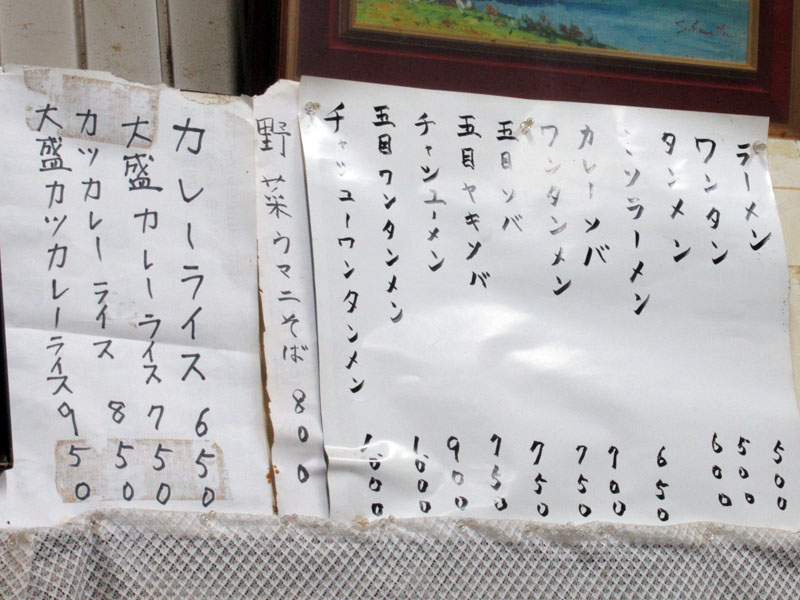 ラーメン 500
ワンタン 500
タンメン 600
ミソラーメン 650
カレーソバ 700
ワンタンメン 750
五目ソバ 750
五目ヤキソバ 750
チャシューメン 900
五目ワンタンメン 1000
チャシューワンタンメン 1000
野菜ウマニそば 800
カレーライス 650
大盛カレーライス 750
カツカレーライス 850
大盛カツカレーライス 950